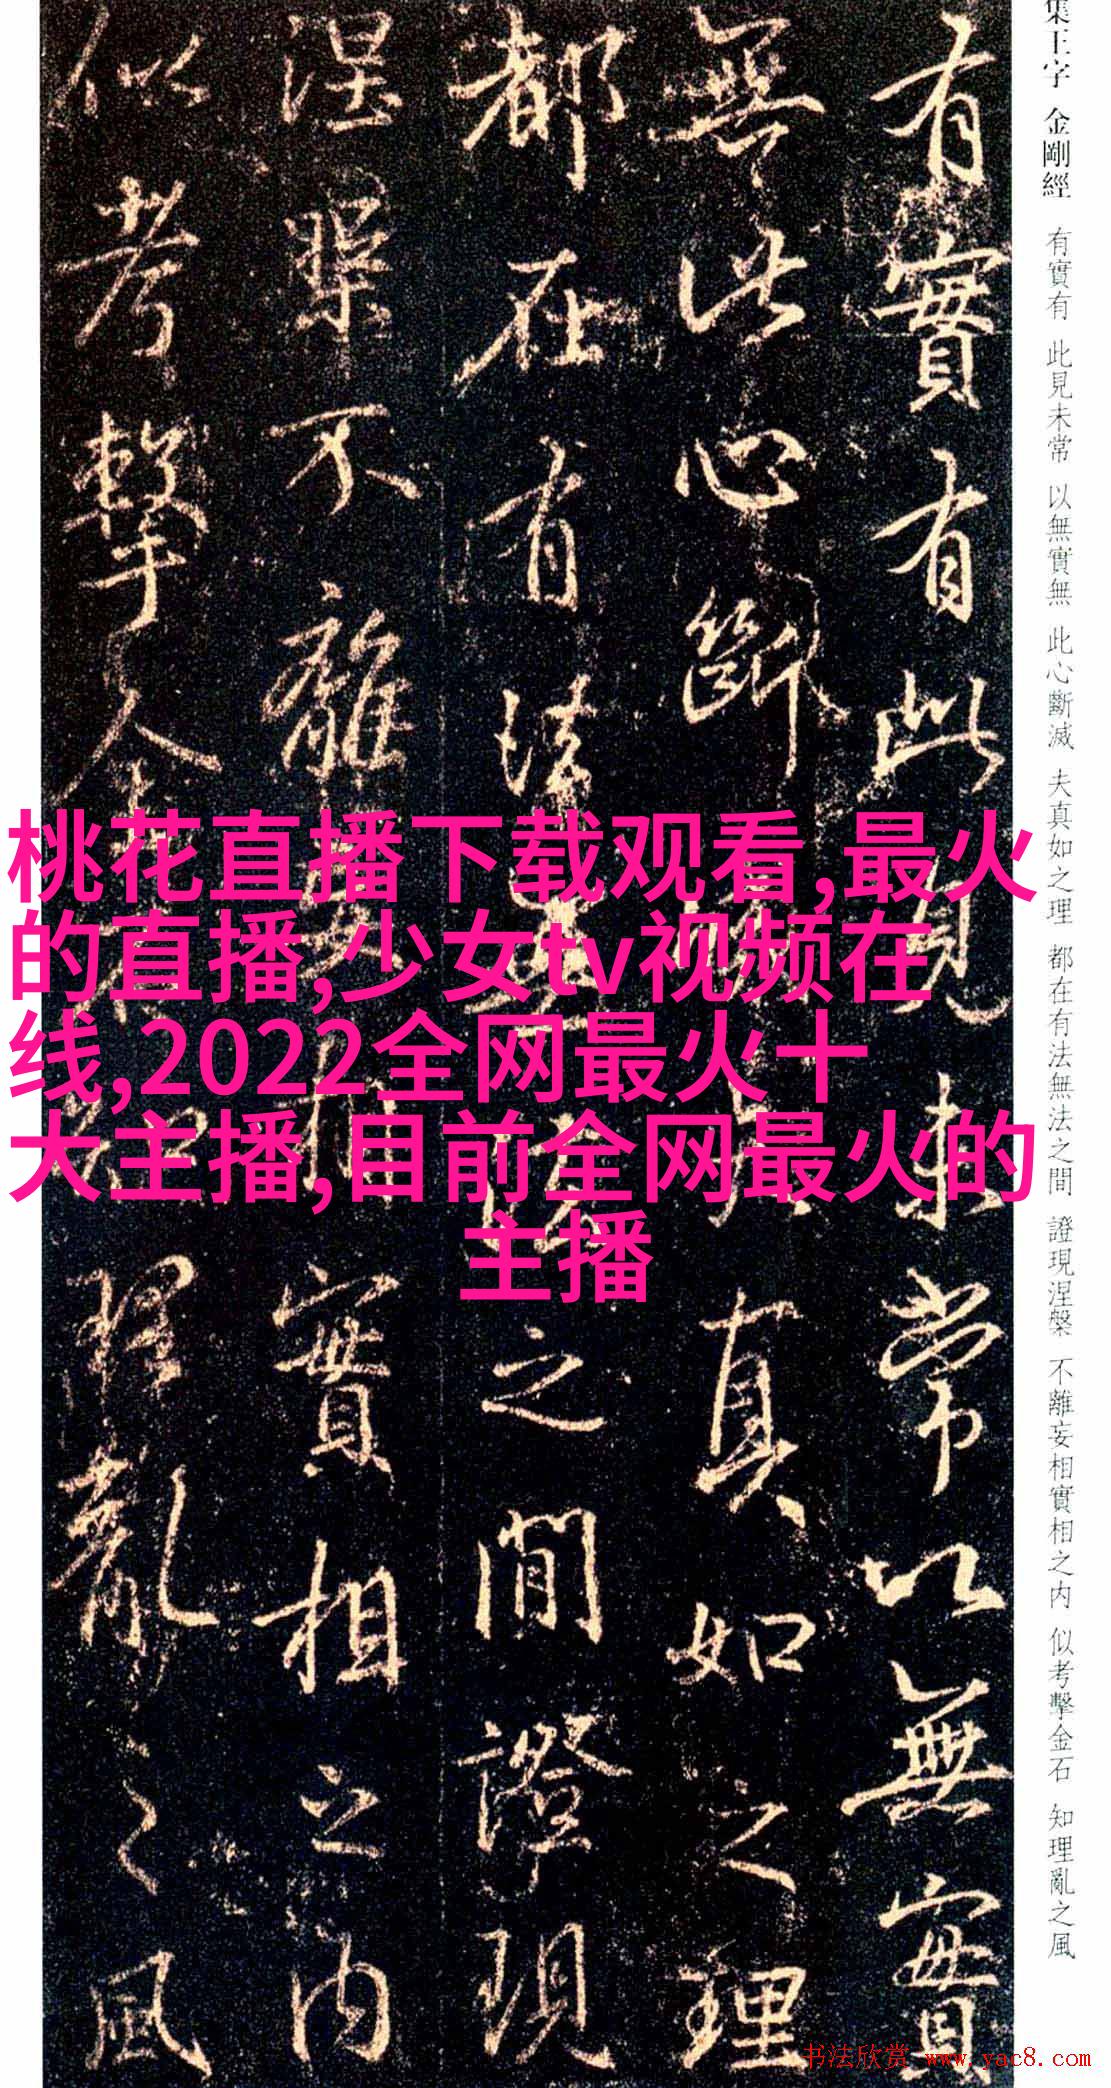 集王字 金剛經 有實有 此見未常 以無實無 此心斷滅 夫真如之理 都在有法無法之間 證現涅槃 不離妄相實相之内 似考擊金石 知理亂之風
有實有此見未常以無實
無此心斷真如之理
都在有法之間證現
涅槃不離實相之内
似考擊金理亂之風
桃花直播下载观看,最火
的直播,少女tv视频在
线,2022全网最火十
大主播,目前全网最火的
主播
书法欣赏 www.yac8.com